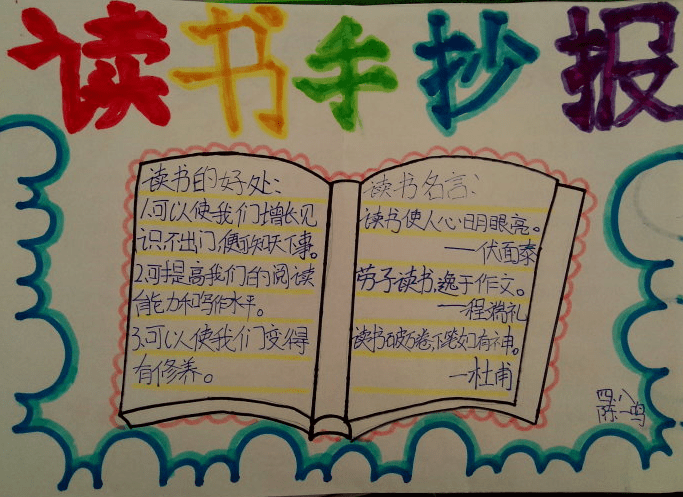 读书手抄报
读书的好处:
1.可以使我们增长见
识,不出门便可知天下事。
2.可提高我们的阅读
能力和写作水平。
3.可以使我们变得
有修养。
读书名言:
读书使人心明眼亮。
——伏面泰
劳于读书,逸于作文。
——程端礼
读书破万卷,下笔如有神。
—杜甫
四.八
陈一鸣